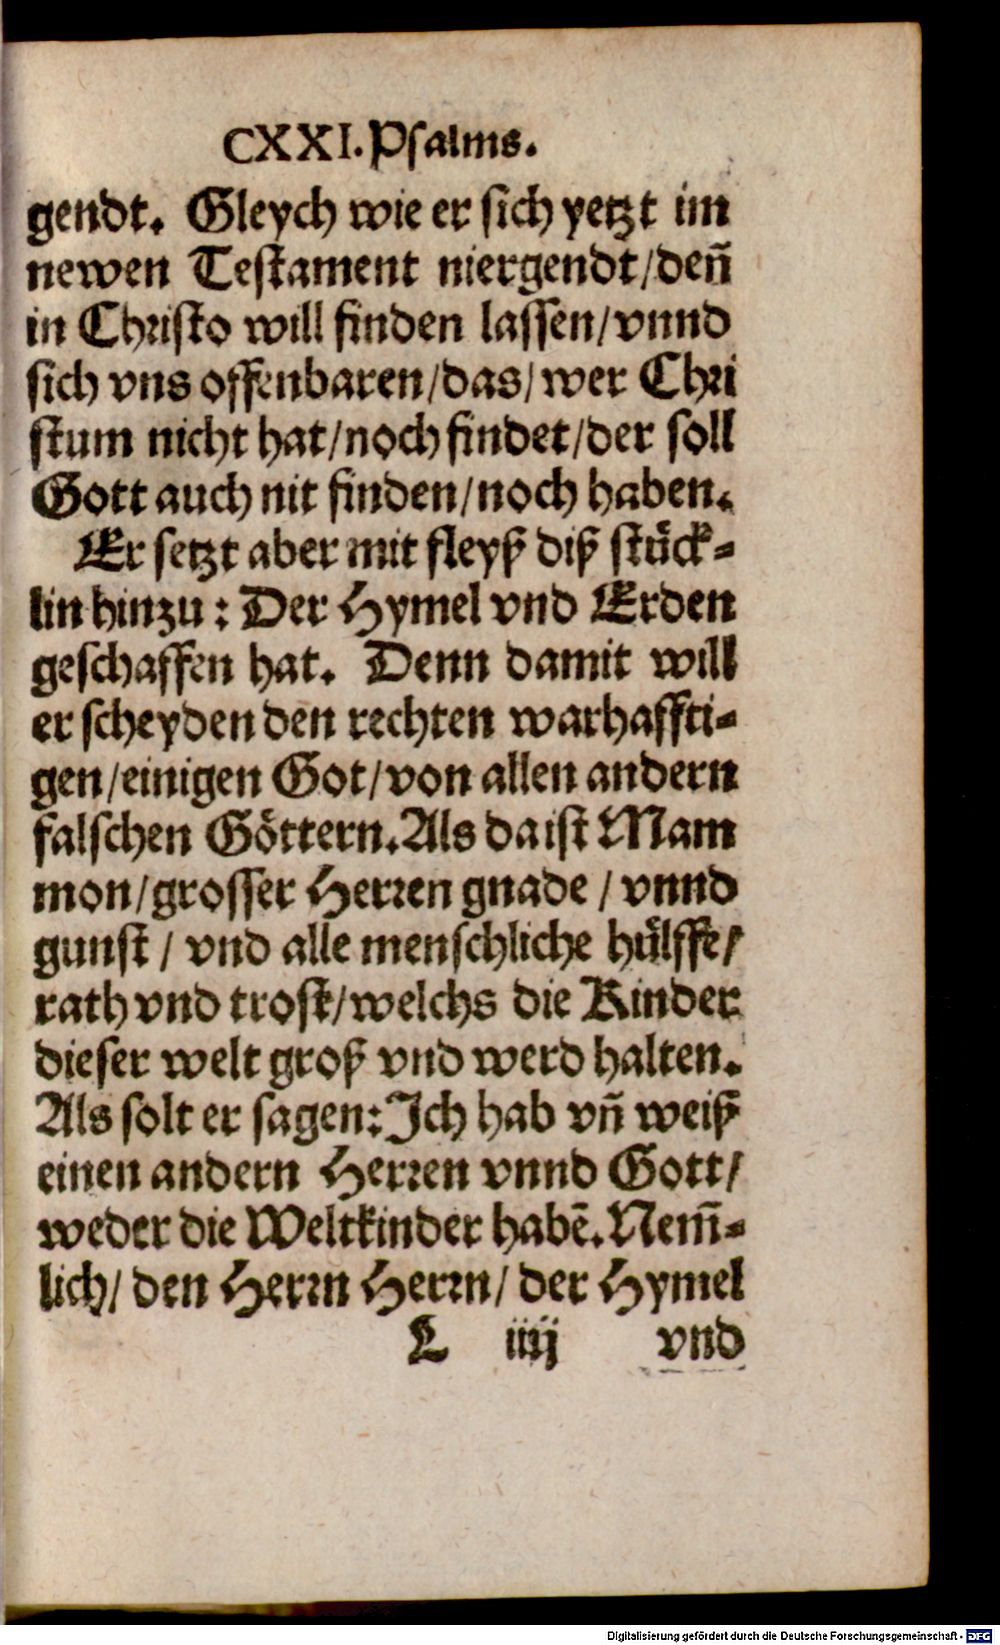 CXXI. Psalms.
gendt. Gleych wie er sich yetzt im
newen Testament niergendt/ deñ
in Christo will finden lassen/ vnnd
sich vns offenbaren/ das/ wer Chri
stum nicht hat/ noch findet/ der soll
Gott auch nit finden/ noch haben.
Er setzt aber mit fleyß diß stuͤck-
lin hinzu: Der Hymel vnd Erden
geschaffen hat. Denn damit will
er scheyden den rechten warhaffti-
gen/ einigen Got/ von allen andern
falschen Goͤttern. Als da ist Mam
mon/ grosser Herren gnade / vnnd
gunst / vnd alle menschliche huͤlffe/
rath vnd trost/ welchs die Kinder
dieser welt groß vnd werd halten.
Als solt er sagen: Ich hab vñ weiß
einen andern Herren vnnd Gott/
weder die Weltkinder habē. Nem̄-
lich/ den Herrn Herrn/ der Hymel
L iiij vnd
Digitalisierung gefördert durch die Deutsche Forschungsgemeinschaft - DFG